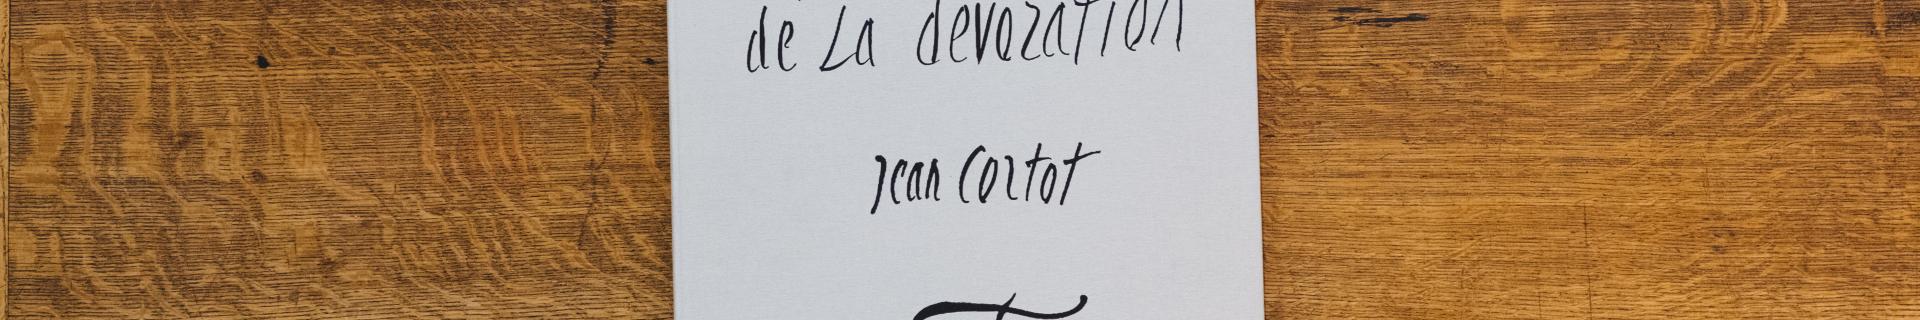 de La dévoration
Jean Cortot